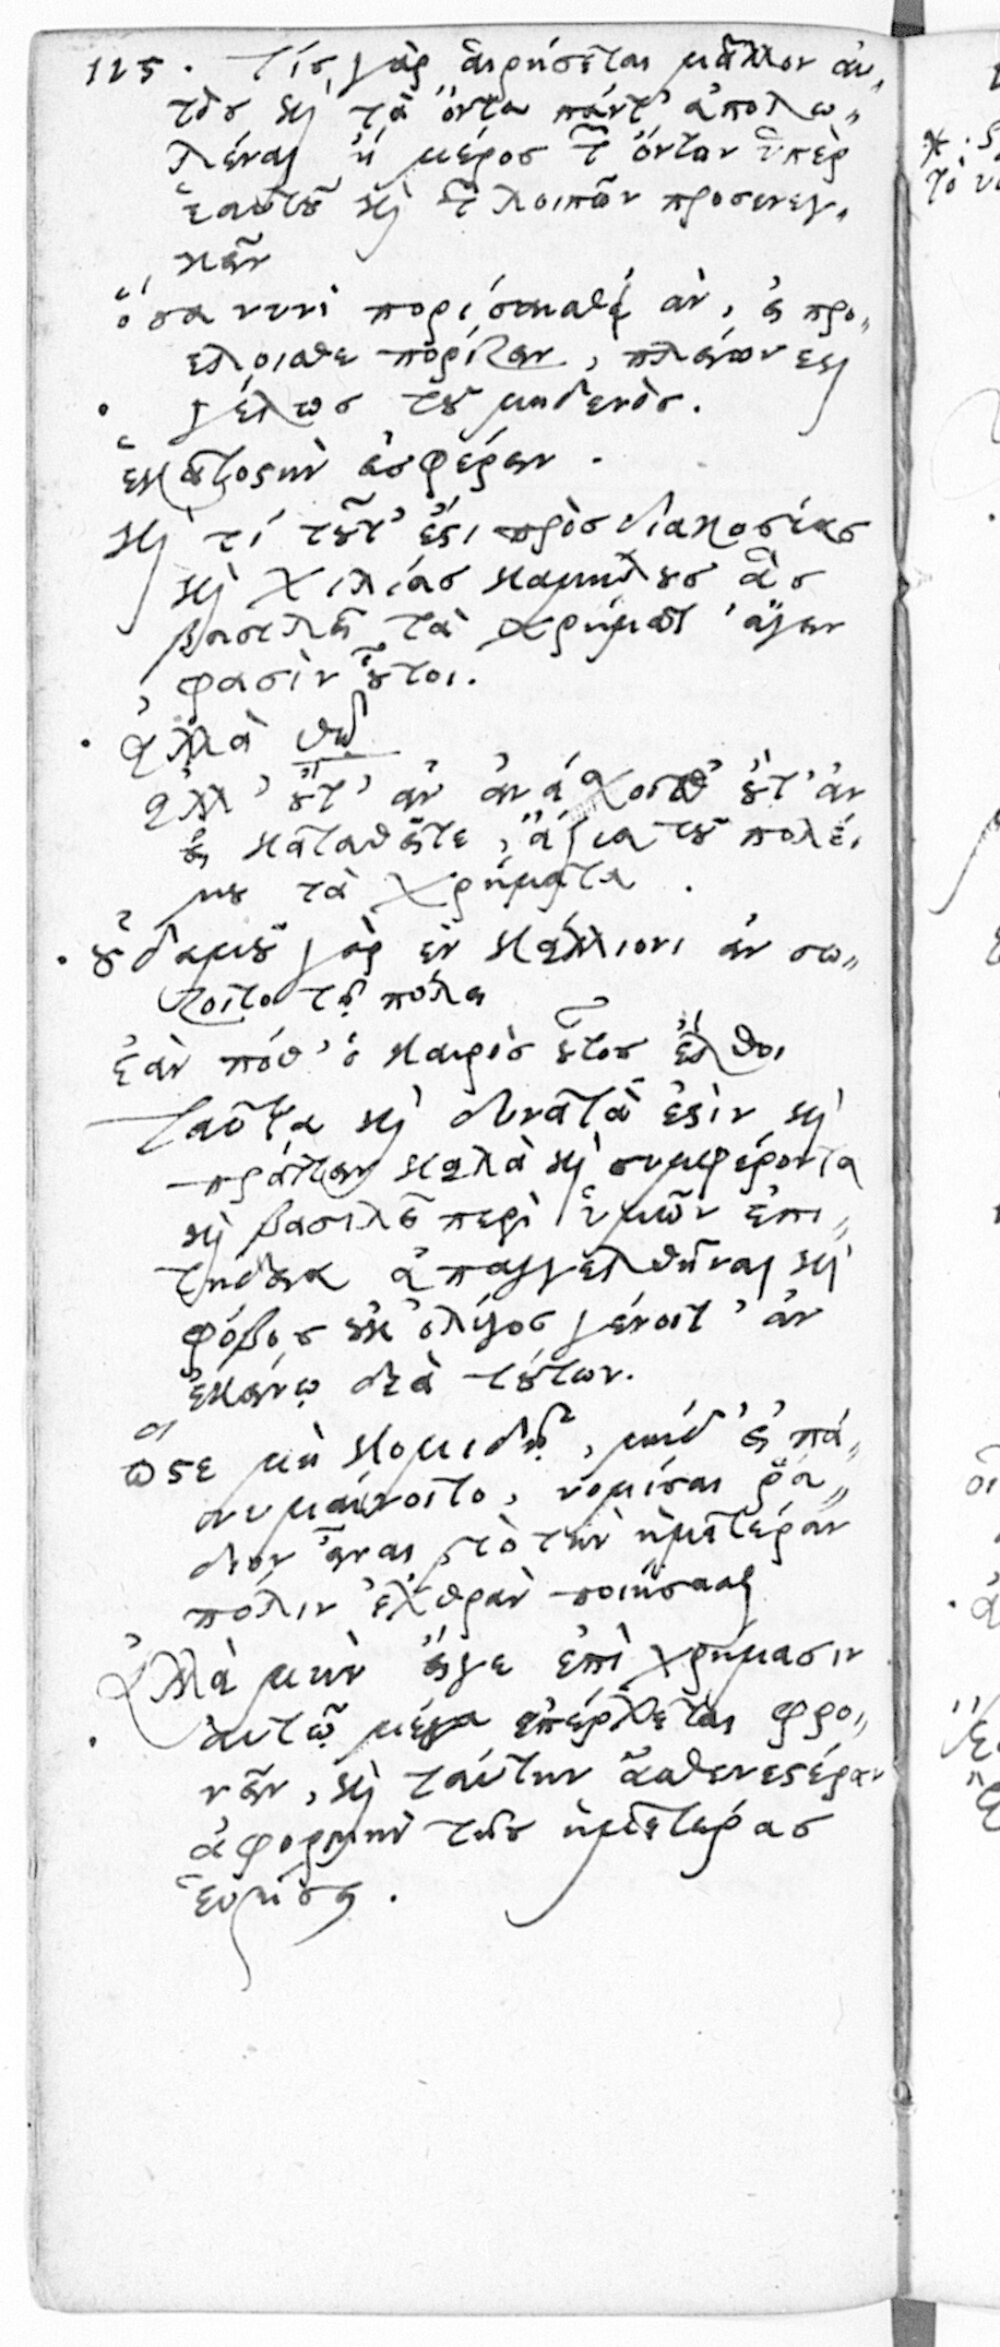 125 . Τίς γὰρ αἱρήσεται μᾶλλον αὐ„
τὸς καὶ τὰ ὄντα πάντ' ἀπολω„
λέναι ἢ μέρος τῶν ὄντων ὑπὲρ
ἑαυτοῦ καὶ τῶν λοιπῶν προσενεγ„
κεῖν
ὅσα νυνὶ πορίσαισθ' ἂν, εἰ προ„
έλοισθε πορίζειν, πλείων ἐστὶ
γέλως τοῦ μηδενός.
ἑκατοστὴν εἰσφέρειν .
καὶ τί τοῦτ' ἔστι πρὸς διακοσίας
καὶ χιλίας καμήλους ἃς
βασιλεῖ τὰ χρήματ' ἄγειν
φασὶν οὗτοι.
ἀλλὰ θῶ
ἀλλ' οὔτ' ἂν ἀνάσχοισθ' οὔτ' ἂν
εἰ καταθεῖτε, ἄξια τοῦ πολέ„
μου τὰ χρήματα .
οὐδαμοῦ γὰρ ἐν καλλίονι ἂν σω„
ζοιτο τῇ πόλει
ἐάν ποθ' ὁ καιρὸς οὗτος ἔλθοι
ταῦτα καὶ δυνατὰ ἐστὶν καὶ
πράττειν καλὰ καὶ συμφέροντα
καὶ βασιλεῖ περὶ ὑμῶν ἐπι„
τήδεια ἀπαγγελθῆναι καὶ
φόβος οὐκ ὀλίγος γένοιτ' ἂν
ἐκείνῳ διὰ τούτων.
ὥστε μὴ κομιδῇ, μηδ' εἰ πά„
νυ μαίνοιτο, νομίσαι ῥᾴ„
διον εἶναι τὸ τὴν ἡμετέραν
πόλιν ἐχθρὰν ποιήσασθαι
ἀλλὰ μὴν εἴγε ἐπὶ χρήμασιν
αὐτῷ μέγα ἐπέρχεται φρο„
νεῖν, καὶ ταύτην ἀσθενεστέραν
ἀφορμὴν τῆς ἡμετέρας
εὑρήσει .